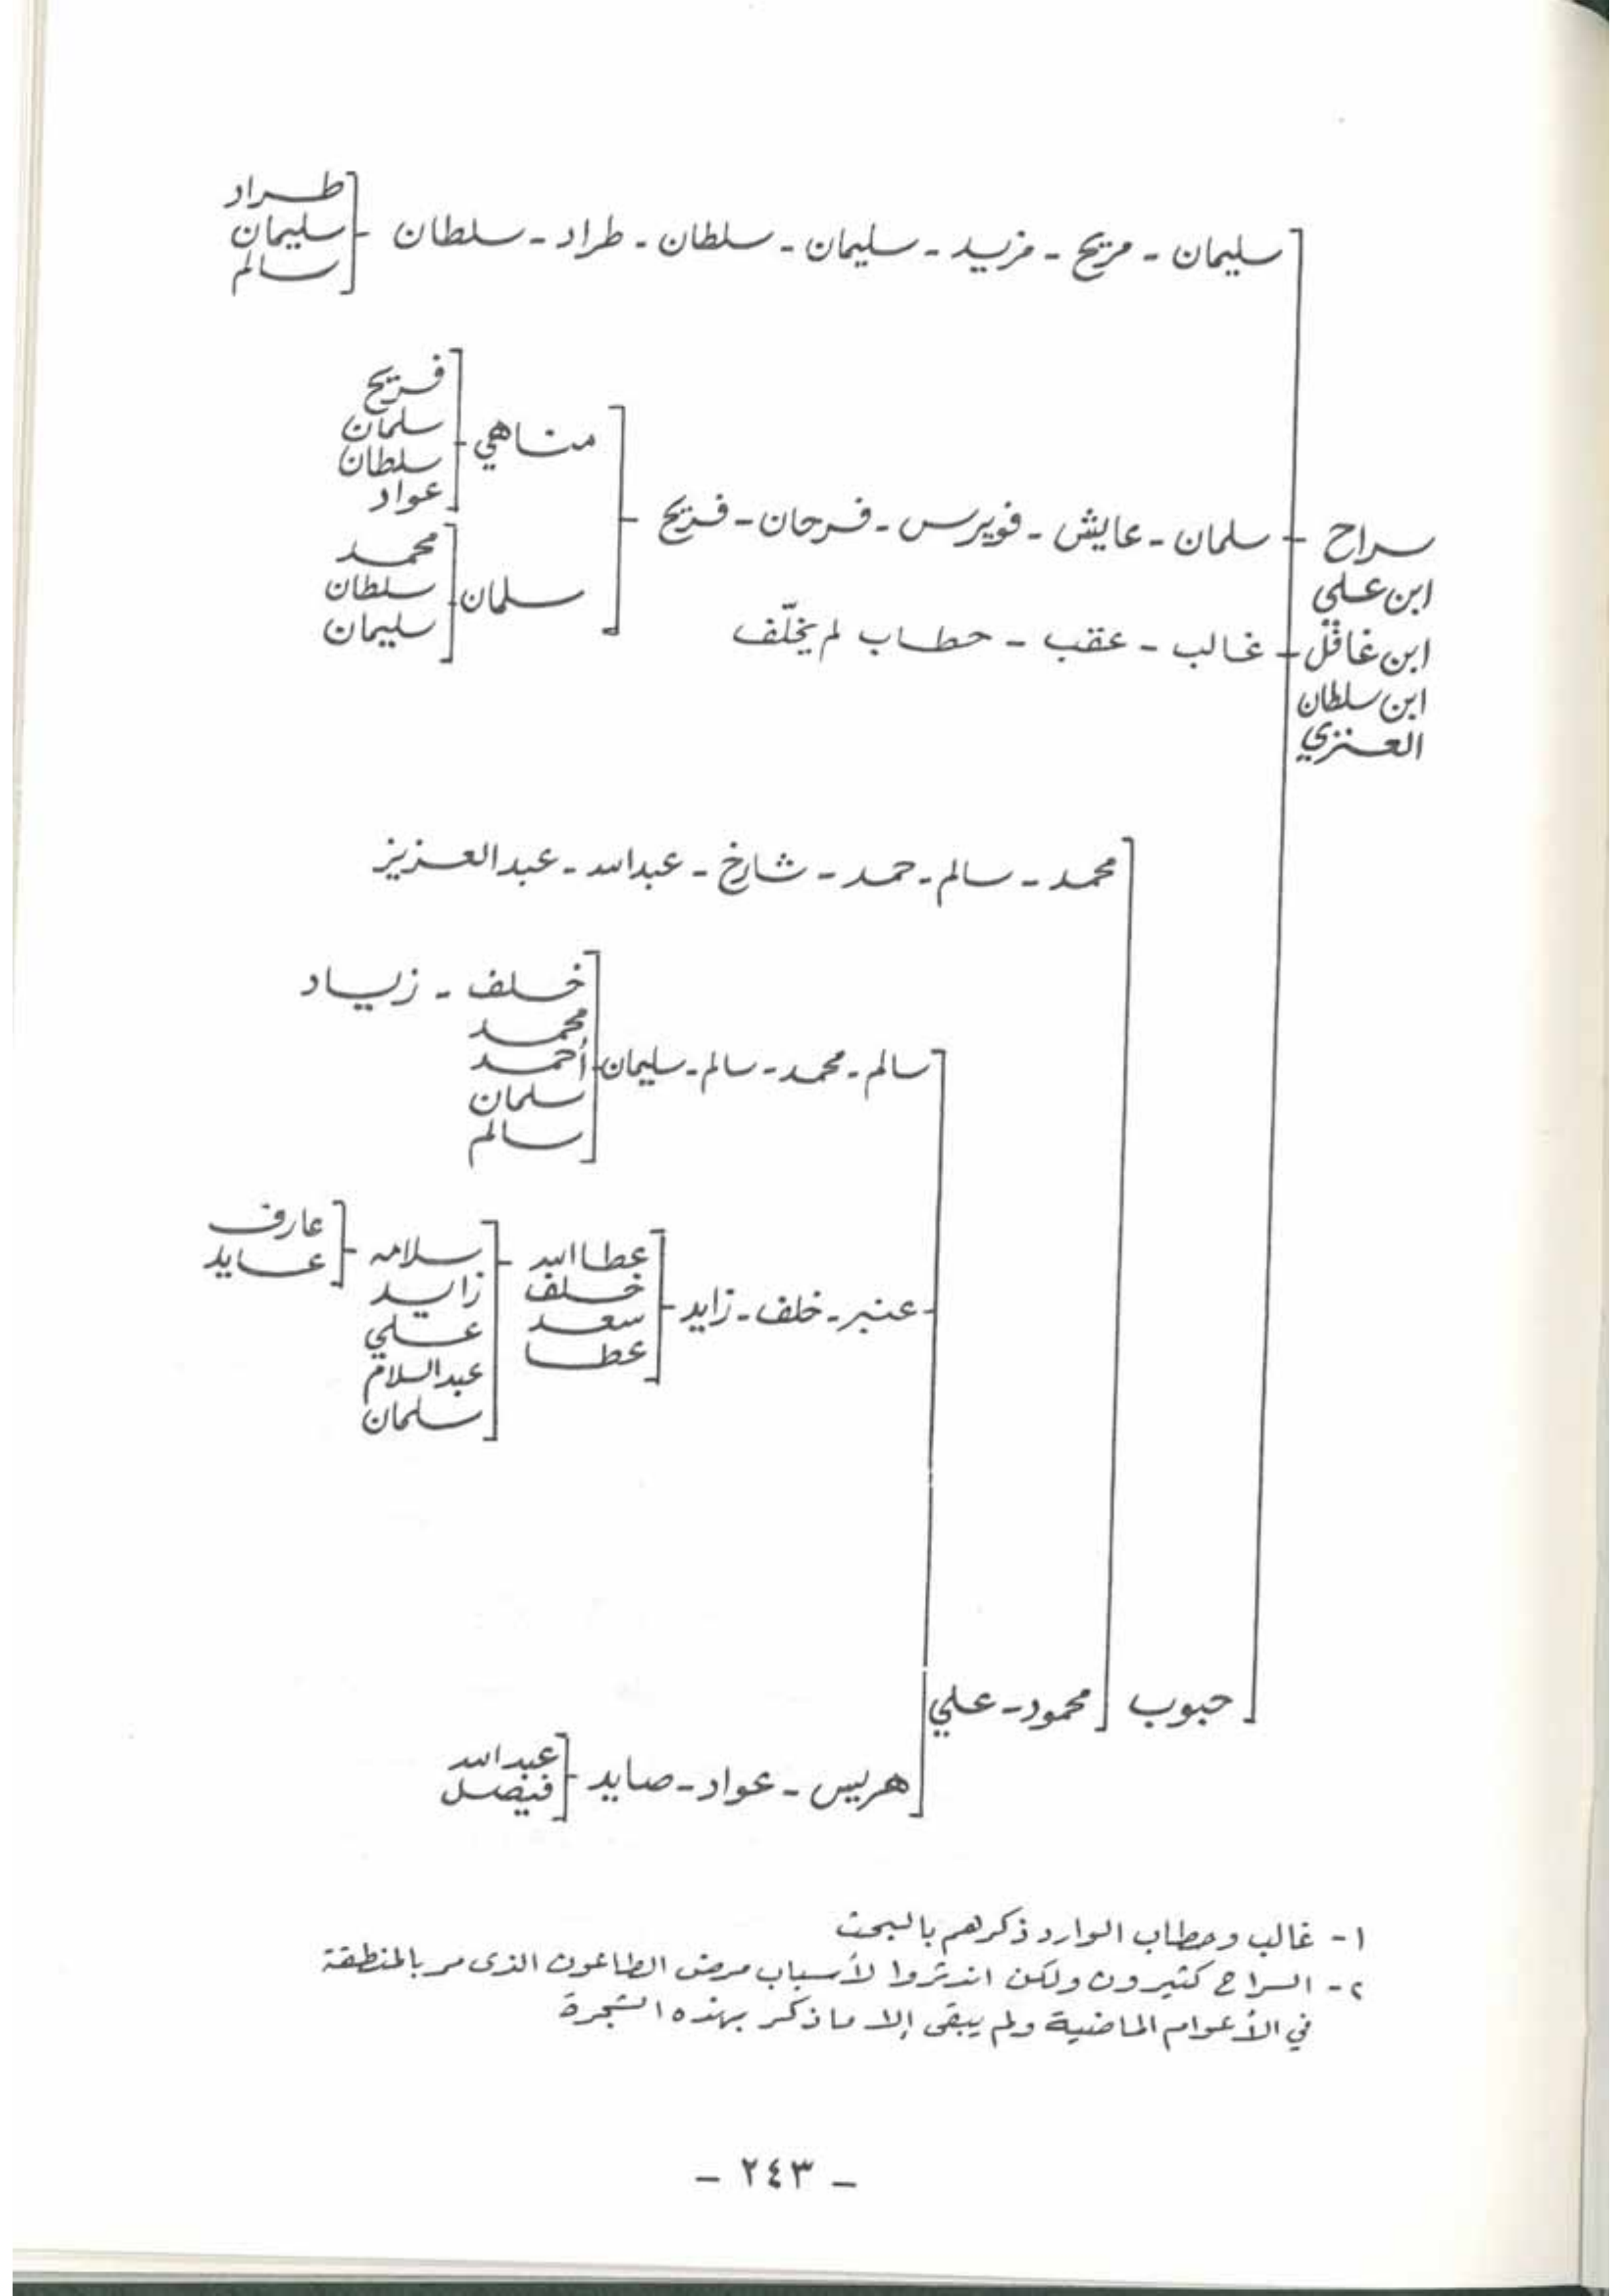 سليمان - مريح - مزيد - سليمان - سلطان - طراد - سلطان
طراد
سليمان
سالم
سراح
ابن علي
ابن غافل
ابن سلطان
العنزي
سلمان - عايش - فويرس - فرحان - فريح
مناهي
فريح
سلمان
سلطان
عواد
سلمان
محمد
سلطان
سليمان
غالب - عقب - حطاب لم يخلّف
محمد - سالم - حمد - شارخ - عبدالله - عبدالعزيز
سالم - محمد - سالم - سليمان
خلف - زياد
محمد
أحمد
سلمان
سالم
عنبر - خلف - زايد
عطاالله
خلف
سعد
عطا
سلامه
زايد
علي
عبدالسلام
سلمان
عارف
عايد
حبوب
محمود - علي
هريس - عواد - صايد
عبدالله
فيصل
١ - غالب وحطاب الوارد ذكرهم بالبحث
٢ - السراح كثيرون ولكن اندثروا لأسباب مرض الطاعون الذى مر بالمنطقة
في الأعوام الماضية ولم يبقى إلا ماذكر بهذه الشجرة
- ٢٤٣ -